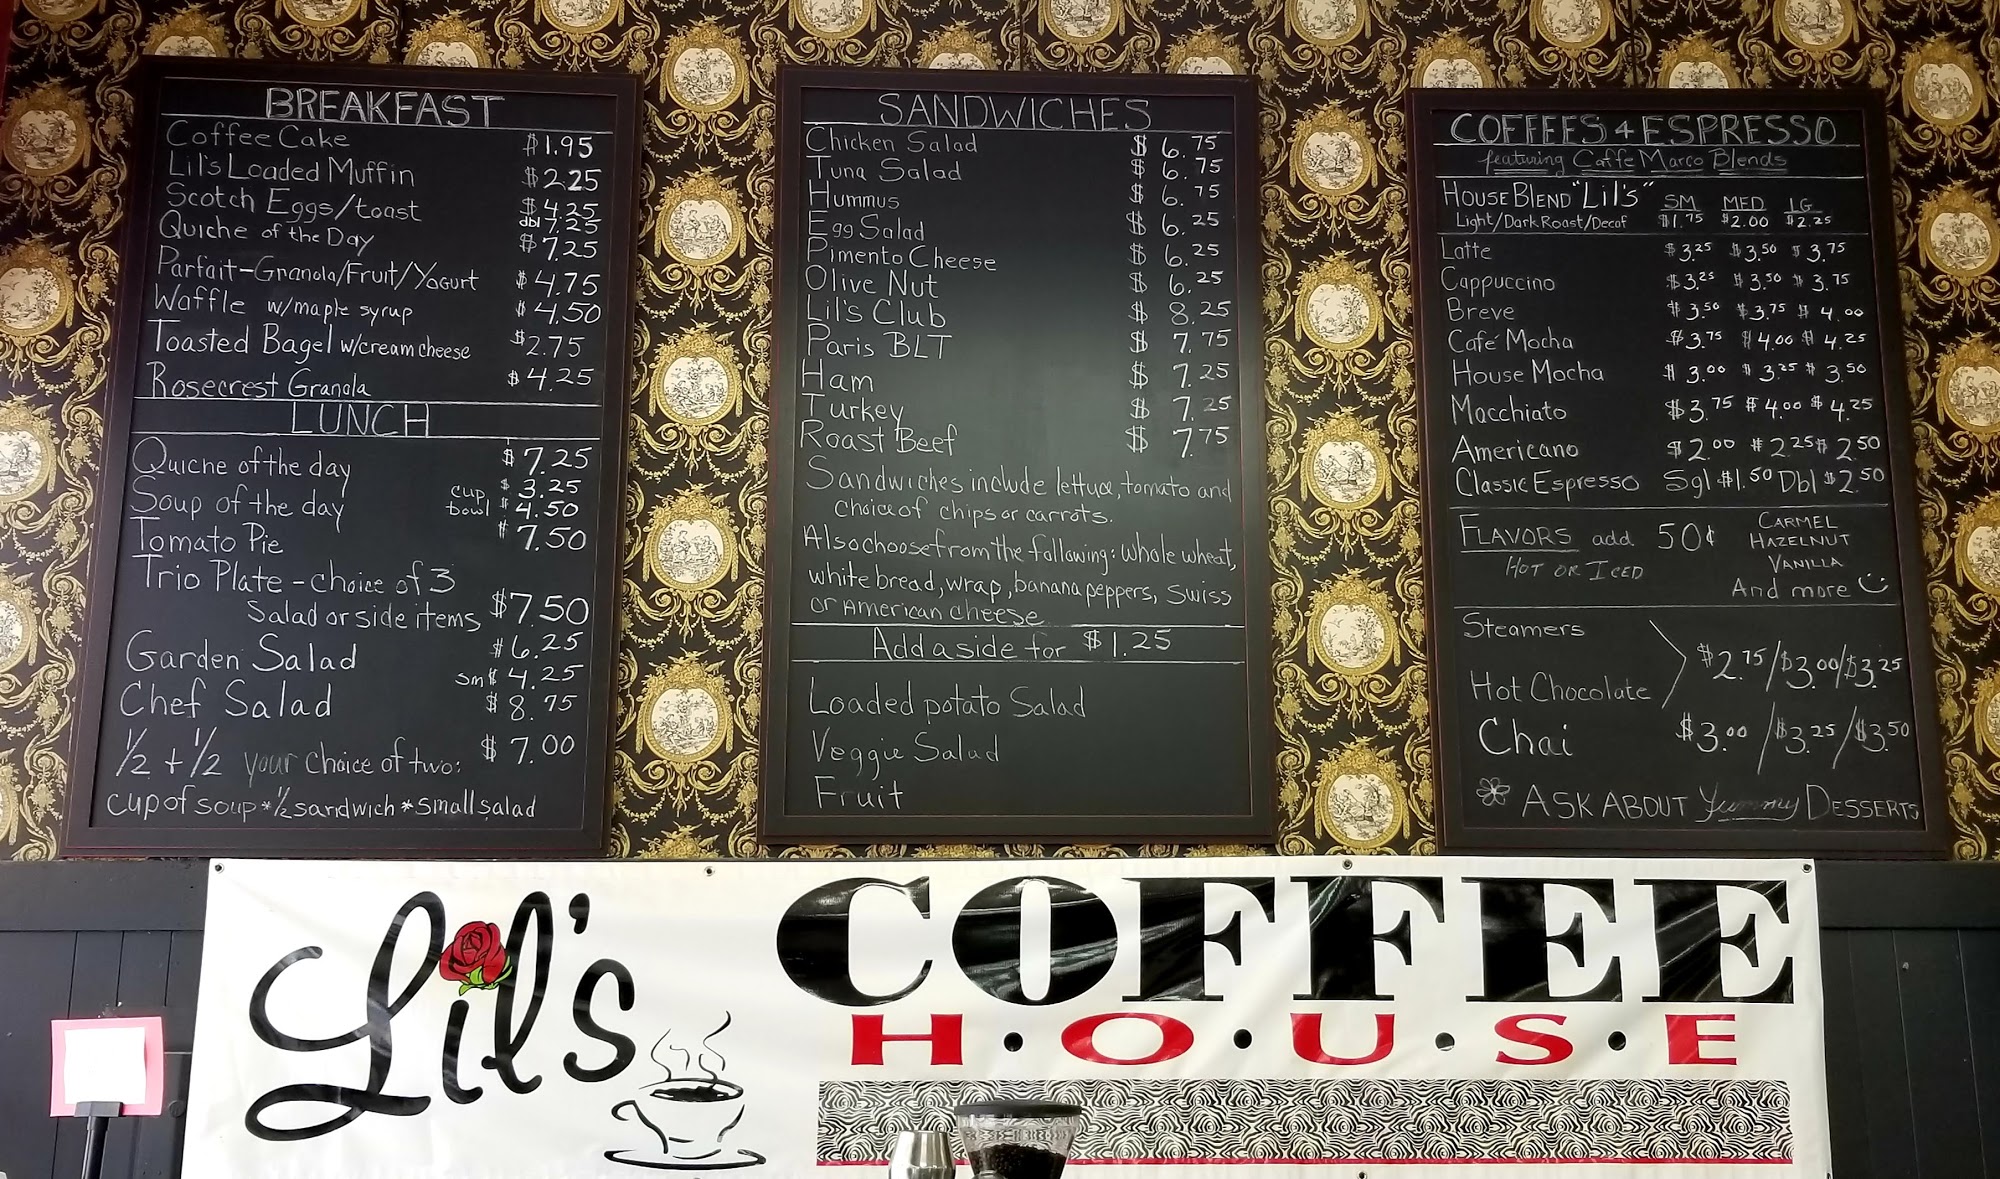 BREAKFAST
Coffee Cake $1.95
Lil's Loaded Muffin $2.25
Scotch Eggs/toast $4.25
dbl 7.25
Quiche of the Day $7.25
Parfait-Granola/Fruit/Yogurt $4.75
Waffle w/maple syrup $4.50
Toasted Bagel w/cream cheese $2.75
Rosecrest Granola $4.25
LUNCH
Quiche of the day $7.25
Soup of the day cup $3.25
bowl $4.50
Tomato Pie $7.50
Trio Plate - choice of 3
Salad or side items $7.50
Garden Salad $6.25
sm $4.25
Chef Salad $8.75
1/2 + 1/2 your choice of two: $7.00
cup of soup * 1/2 sandwich * small salad
SANDWICHES
Chicken Salad $6.75
Tuna Salad $6.75
Hummus $6.75
Egg Salad $6.25
Pimento Cheese $6.25
Olive Nut $6.25
Lil's Club $8.25
Paris BLT $7.75
Ham $7.25
Turkey $7.25
Roast Beef $7.75
Sandwiches include lettuce, tomato and
choice of chips or carrots.
Also choose from the following: whole wheat,
white bread, wrap, banana peppers, Swiss
or American cheese
Add a side for $1.25
Loaded potato Salad
Veggie Salad
Fruit
COFFEES + ESPRESSO
featuring Caffe Marco Blends
HOUSE BLEND "Lil's" SM MED LG
Light/Dark Roast/Decaf $1.75 $2.00 $2.25
Latte $3.25 $3.50 $3.75
Cappuccino $3.25 $3.50 $3.75
Breve $3.50 $3.75 $4.00
Café Mocha $3.75 $4.00 $4.25
House Mocha $3.00 $3.25 $3.50
Macchiato $3.75 $4.00 $4.25
Americano $2.00 $2.25 $2.50
Classic Espresso Sgl $1.50 Dbl $2.50
FLAVORS add 50¢ CARMEL
HAZELNUT
HOT OR ICED VANILLA
And more
Steamers
$2.75/$3.00/$3.25
Hot Chocolate
Chai $3.00/$3.25/$3.50
ASK ABOUT Yummy DESSERTS
Lil's COFFEE
H·O·U·S·E